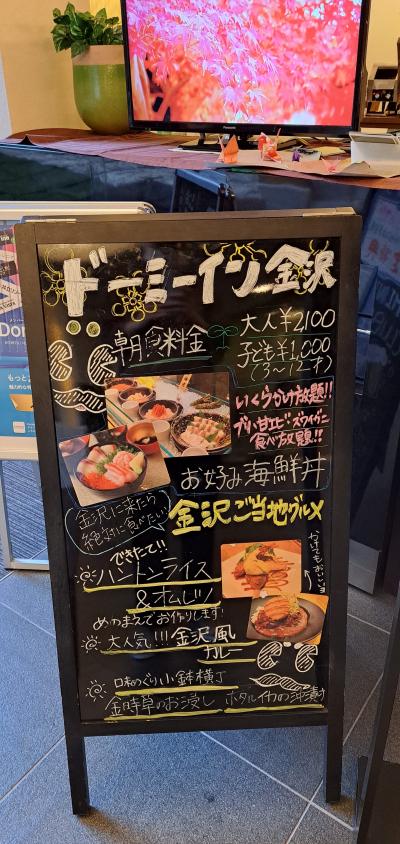 Panasonic
ドーミーイン金沢
朝食料金
大人¥2,100
子ども¥1,000
(3~12才)
いくらかけ放題!!
ブリ・甘エビ・ズワイガニ
食べ放題!!
お好み海鮮丼
金沢に来たら
絶対に食べたい
金沢ご当地グルメ
できたて!!
ハントンライス
&オムレツ
かけてもおいしいヨ
めのまえでお作りします!
大人気!!!金沢風
カレー
口味めぐり小鉢横丁
金時草のお浸し ホタルイカの沖漬け